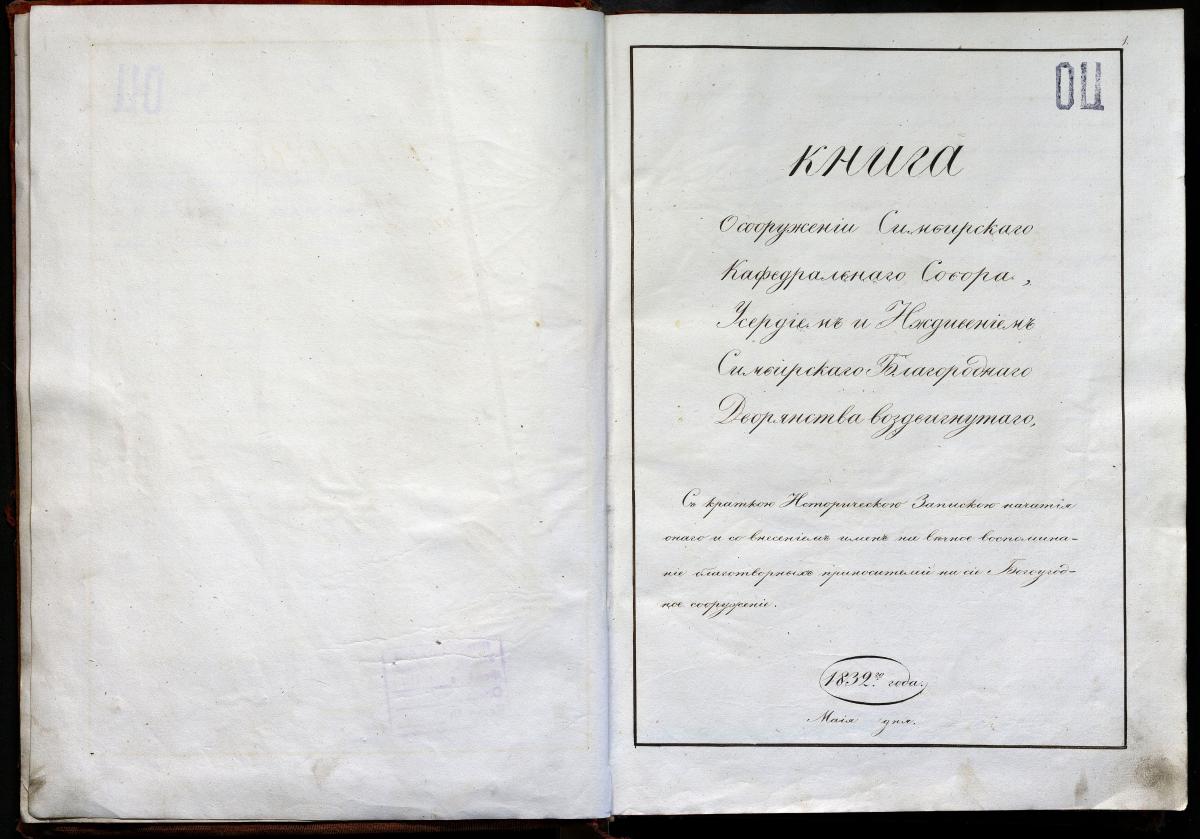 1.
ОЦ
Книга
О сооруженіи Симбирскаго
Кафедральнаго Собора,
Усердіемъ и Иждивеніемъ
Симбирскаго Благороднаго
Дворянства воздвигнутаго,
Съ краткою Историческою Запискою начатія
онаго и со внесеніемъ именъ на вѣчное воспомина-
ніе благотворныхъ приносителей на сіе Богоугод-
ное сооруженіе.
1832го года.
Маія дня.